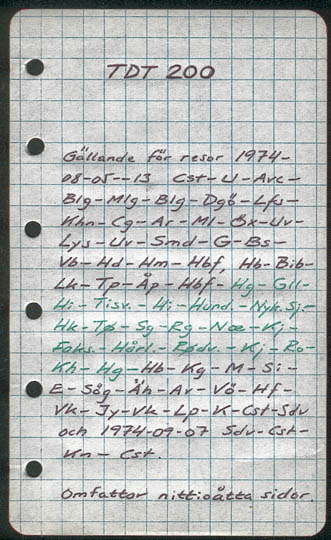 TDT 200
Gällande för resor 1974-
08-05--13 Cst-U-Avc-
Blg-Mlg-Blg-Dgö-Lfs-
Khn-Cg-Ar-Ml-Öx-Uv-
Lys-Uv-Smd-G-Bs-
Vb-Hd-Hm-Hbf, Hb-Bib-
Lk-Tp-Åp-Hbf-Hg-Gll-
Hi-Tisv.-Hi-Hund.-Nyk.Sj.-
Hk-Tø-Sg-Rg-Næ-Kj-
Faks.-Hårl.-Rødv.-Kj-Ro-
Kh-Hg-Hb-Kg-M-Si-
E-Sög-Äh-Av-Vö-Hf-
Vk-Jy-Vk-Lp-K-Cst-Sdv
och 1974-09-07 Sdv-Cst-
Kn-Cst.
Omfattar nittioåtta sidor.